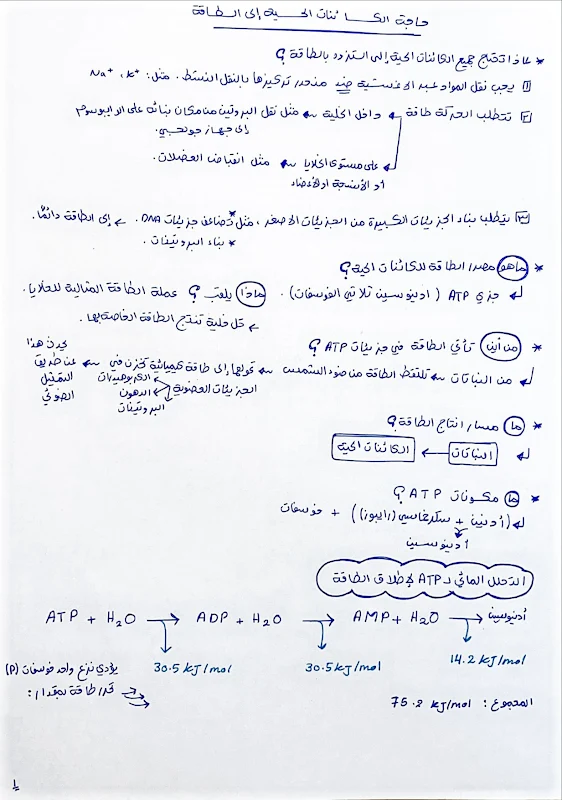 حاجة الكائنات الحية إلى الطاقة
* لماذا تحتاج جميع الكائنات الحية إلى التزود بالطاقة؟
1 يجب نقل المواد عبر الأغشية ضد منحدر تركيزها بالنقل النشط. مثل: K+ ، Na+
2 تتطلب الحركة طاقة داخل الخلية مثل نقل البروتين من مكان بنائه على الرايبوسوم
إلى جهاز جولجي.
على مستوى الخلايا مثل انقباض العضلات.
أو الأنسجة أو الأعضاء
3 يتطلب بناء الجزيئات الكبيرة من الجزيئات الأصغر، مثل * تضاعف جزيئات DNA. إلى الطاقة دائمًا.
* بناء البروتينات.
* ما هو مصدر الطاقة للكائنات الحية؟
جزي ATP (ادينوسين ثلاثي الفوسفات). ماذا يلقب؟ عملة الطاقة المثالية للخلايا.
كل خلية تنتج الطاقة الخاصة بها.
* من أين تأتي الطاقة في جزيئات ATP؟
من النباتات تلتقط الطاقة من ضوء الشمس تحولها إلى طاقة كيميائية تخزن في الجزيئات العضوية
الكربوهيدرات
الدهون
البروتينات
يحدث هذا
عن طريق
التمثيل
الضوئي
* ما مسار انتاج الطاقة؟
النباتات ← الكائنات الحية
* ما مكونات ATP؟
(أدنين + سكر خماسي (رايبوز)) + فوسفات
أدينوسين
التحلل المائي لـ ATP لإطلاق الطاقة
ATP + H2O → ADP + H2O → AMP + H2O → أدينوسين
30.5 kJ/mol 30.5 kJ/mol 14.2 kJ/mol
يؤدي نزع واحد فوسفات (P)
تحرر طاقة بمقدار:
المجموع: 75.2 kJ/mol
1